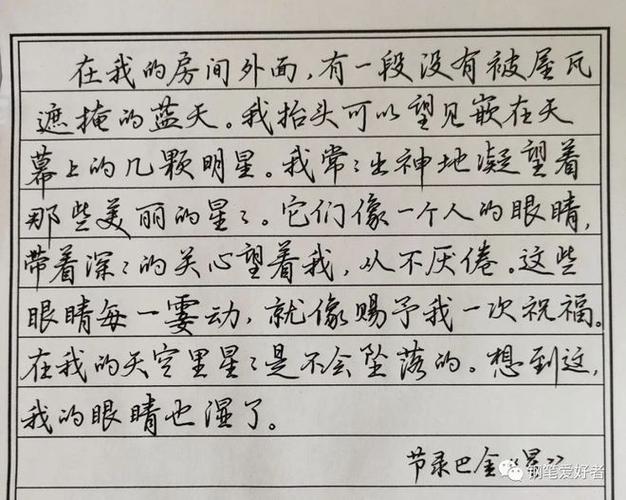 在我的房间外面,有一段没有被屋瓦
遮掩的蓝天。我抬头可以望见嵌在天
幕上的几颗明星。我常:出神地凝望着
那些美丽的星:。它们像一个人的眼睛,
带着深:的关心望着我,从不厌倦。这些
眼睛每一霎动,就像赐予我一次祝福。
在我的天空里星:是不会坠落的。想到这,
我的眼睛也湿了。
节录巴金《星》
钢笔爱好者